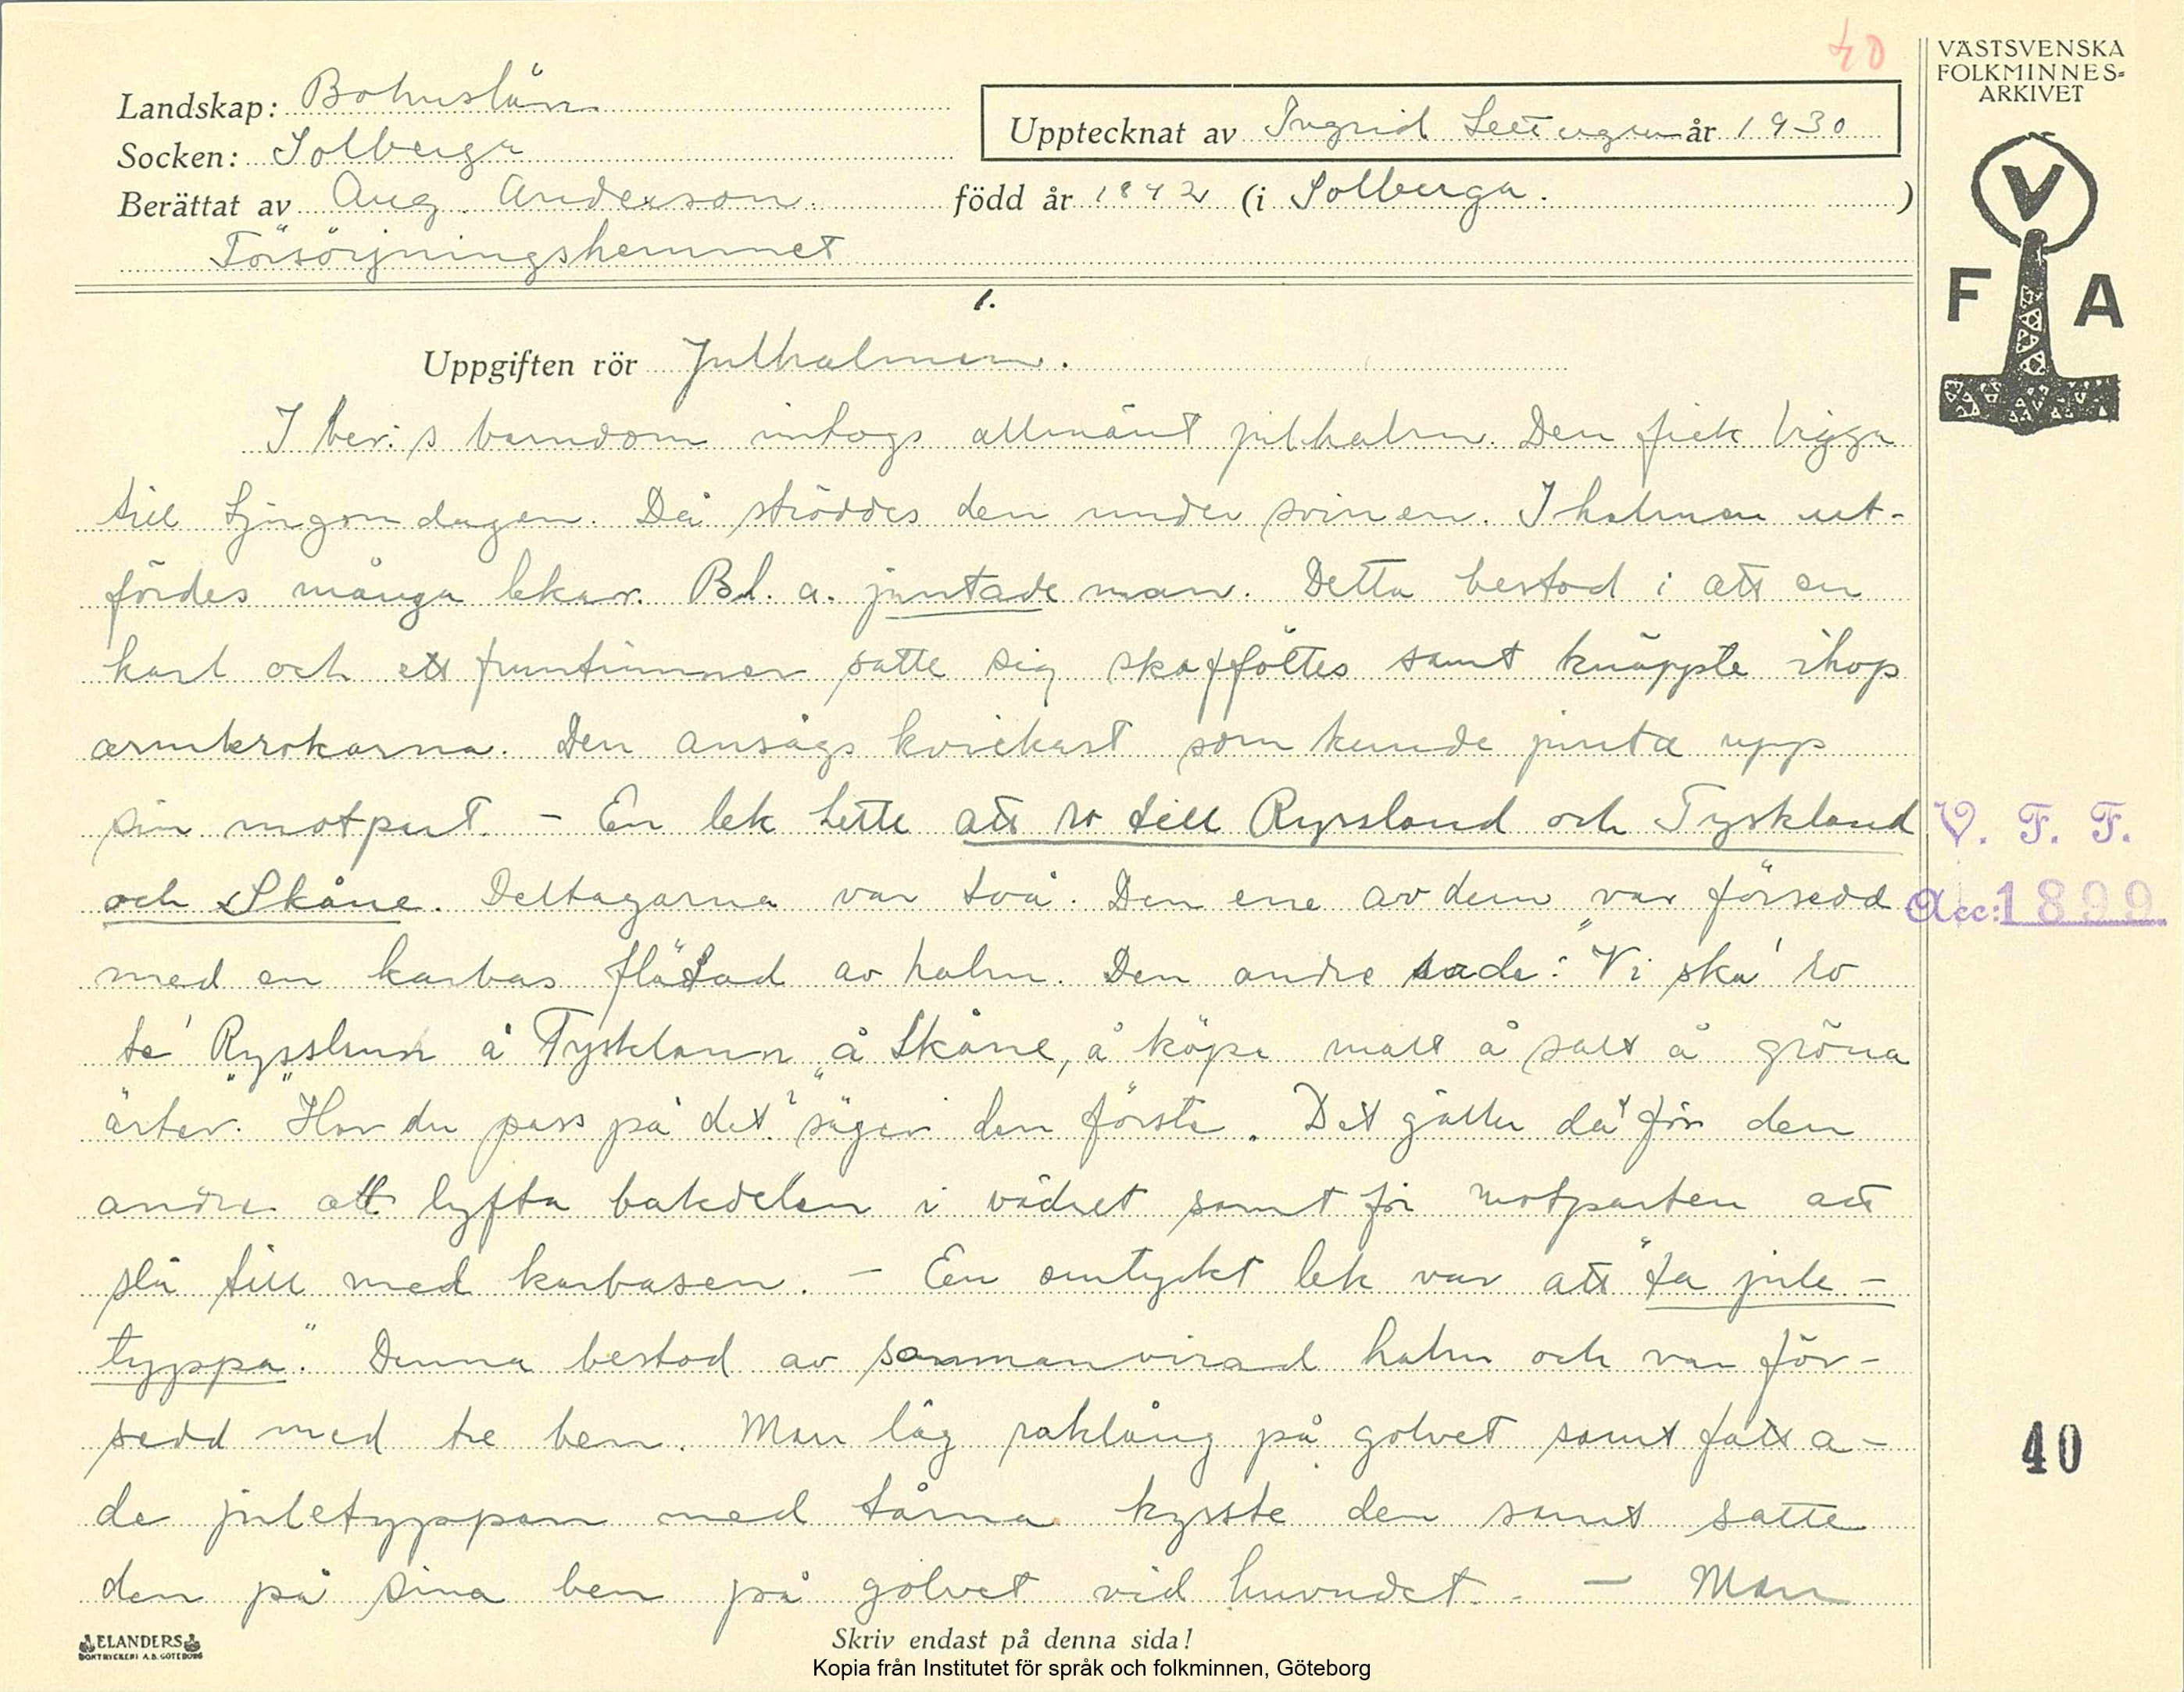 40
VÄSTSVENSKA
FOLKMINNES-
ARKIVET
Landskap: Bohuslän
Socken: Solberga
Upptecknat av Ingrid år 1930
Berättat av Aug. Anderson. född år 1842 (i Solberga. )
Försörjningshemmet
V
F A
1.
Uppgiften rör Julhalmen.
I ber:s barndom intogs allmänt julhalm. Den fick ligga
till tjugondagen. Då ströddes den under svinen. I halmen ut-
fördes många lekar. Bl. a. juntade man. Detta bestod i att en
karl och ett fruntimmer satte sig skafföttes samt knäppte ihop
armkrokarna. Den ansågs kvickast som kunde junta upp
sin motpart. – En lek hette att ro till Ryssland och Tyskland
V. F. F.
och Skåne. Deltagarna var två. Den ene av dem var försedd
Acc: 1899
med en karbas flätad av halm. Den andre sade: "Vi ska' ro
te' Rysslann å Tysklann å Skåne, å köpe malt å salt å gröna
ärter." "Har du pass på det?" säger den förste. Det gäller då för den
andre att lyfta bakdelen i vädret samt för motparten att
slå till med karbasen. – En omtyckt lek var att "ta jule-
typpa". Denna bestod av sammanvirad halm och var för-
sedd med tre ben. Man låg raklång på golvet samt fatta-
40
de juletyppan med tårna kysste den samt satte
den på sina ben på golvet vid huvudet. – Man
ELANDERS
BOKTRYCKERI A.B. GÖTEBORG
Skriv endast på denna sida!
Kopia från Institutet för språk och folkminnen, Göteborg